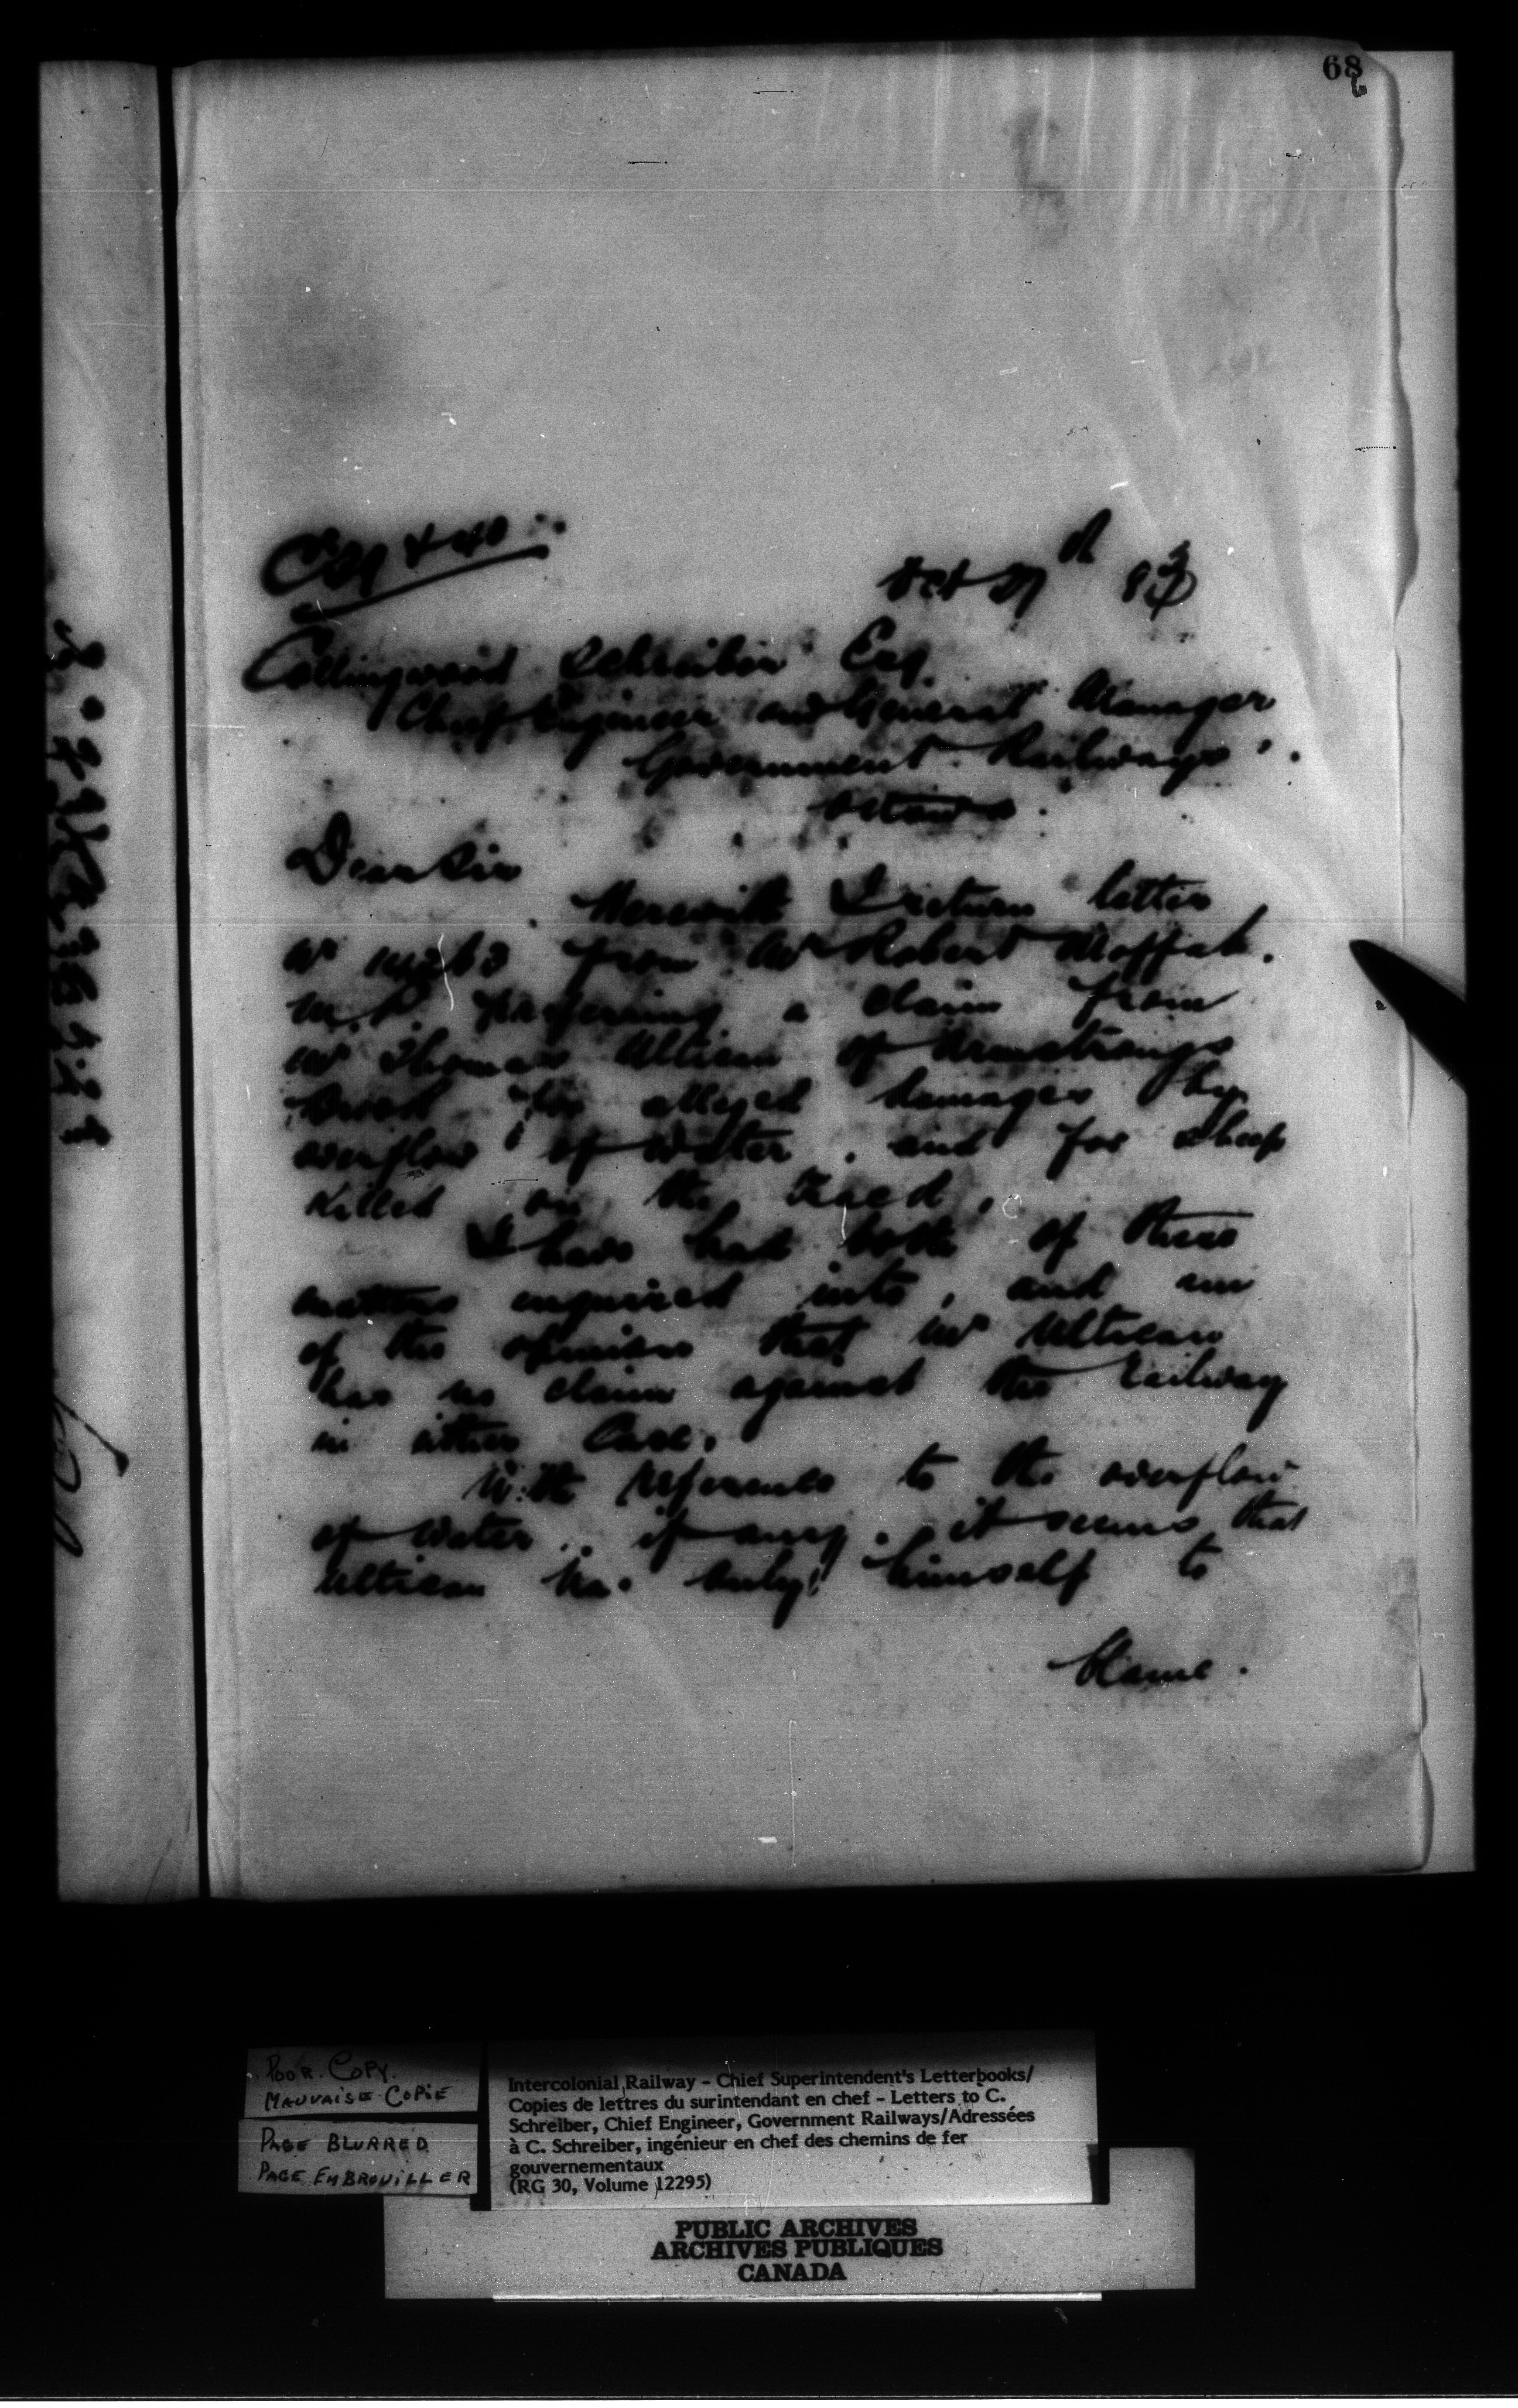 68
Oct 27th 83
Collingwood Schreiber Esq
Chief Engineer and General Manager
Government Railways
Ottawa.
Dear Sir
Herewith I return letter
from Mr Robert Moffat.
M.P. preferring a claim from
Mr Thomas Ultican of Armstrongs
Brook for alleged damages by
overflow of water. and for sheep
killed on the track.
I have had both of these
matters enquired into, and am
of the opinion that Mr Ultican
has no claim against the railway
in either case.
With reference to the overflow
of water. if any. it seems that
Ultican has only himself to
blame.
POOR. COPY.
MAUVAISE COPIE
PAGE BLURRED
PAGE EMBROUILLER
Intercolonial Railway – Chief Superintendent's Letterbooks/
Copies de lettres du surintendant en chef – Letters to C.
Schreiber, Chief Engineer, Government Railways/Adressées
à C. Schreiber, ingénieur en chef des chemins de fer
gouvernementaux
(RG 30, Volume 12295)
PUBLIC ARCHIVES
ARCHIVES PUBLIQUES
CANADA